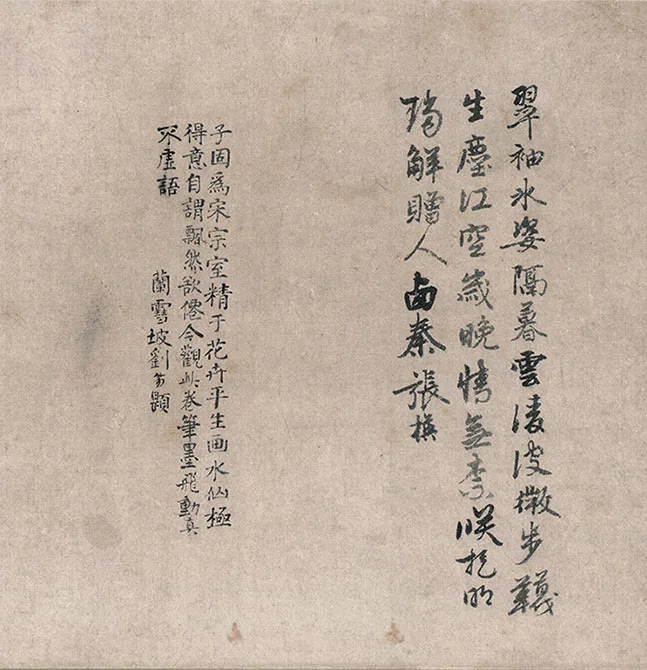 翠袖冰姿隔暮雲淩波微步韈
生塵江空歲晚情無柰咲把明
璫解贈人卥秦張模
子固爲宋宗室精于花卉平生画水仙極
得意自謂飄然欲僊今觀此卷筆墨飛動真
不虛語 蘭雪坡劉題